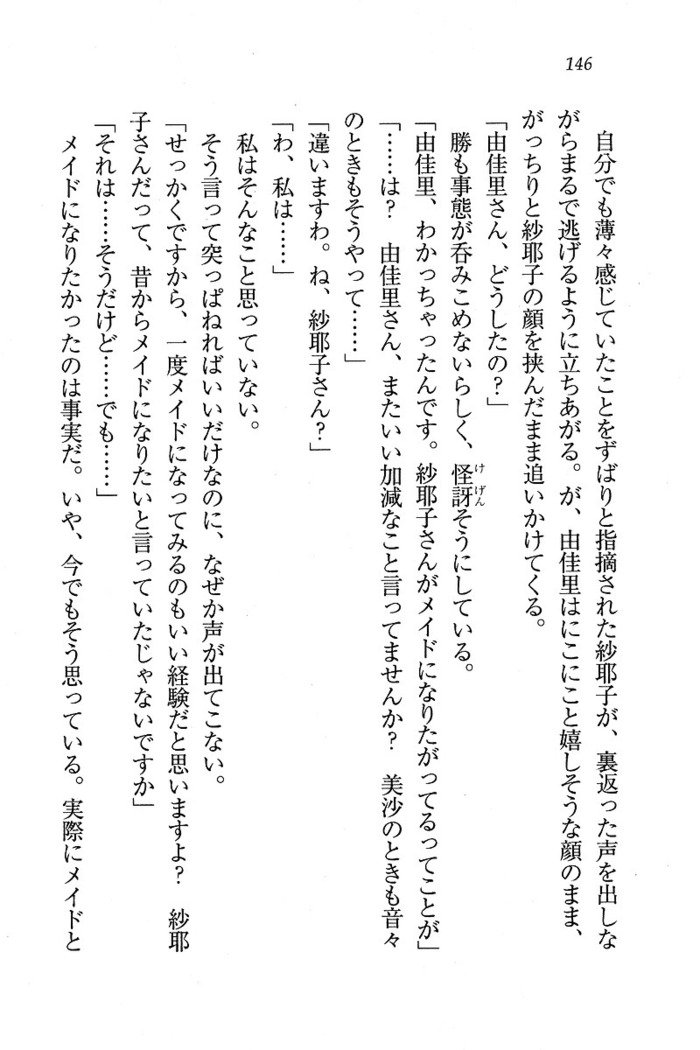 146
自分でも薄々感じていたことをずばりと指摘された紗耶子が、裏返った声を出しな
がらまるで逃げるように立ちあがる。が、由佳里はにこにこと嬉しそうな顔のまま、
がっちりと紗耶子の顔を挟んだまま追いかけてくる。
「由佳里さん、どうしたの?」
勝も事態が呑みこめないらしく、怪訝そうにしている。
「由佳里、わかっちゃったんです。紗耶子さんがメイドになりたがってるってことが」
「……は? 由佳里さん、またいい加減なこと言ってませんか? 美沙のときも音々
のときもそうやって……」
「違いますわ。ね、紗耶子さん?」
「わ、私は……」
私はそんなこと思っていない。
そう言って突っぱねればいいだけなのに、なぜか声が出てこない。
「せっかくですから、一度メイドになってみるのもいい経験だと思いますよ? 紗耶
子さんだって、昔からメイドになりたいと言っていたじゃないですか」
「それは……そうだけど……でも……」
メイドになりたかったのは事実だ。いや、今でもそう思っている。実際にメイドと